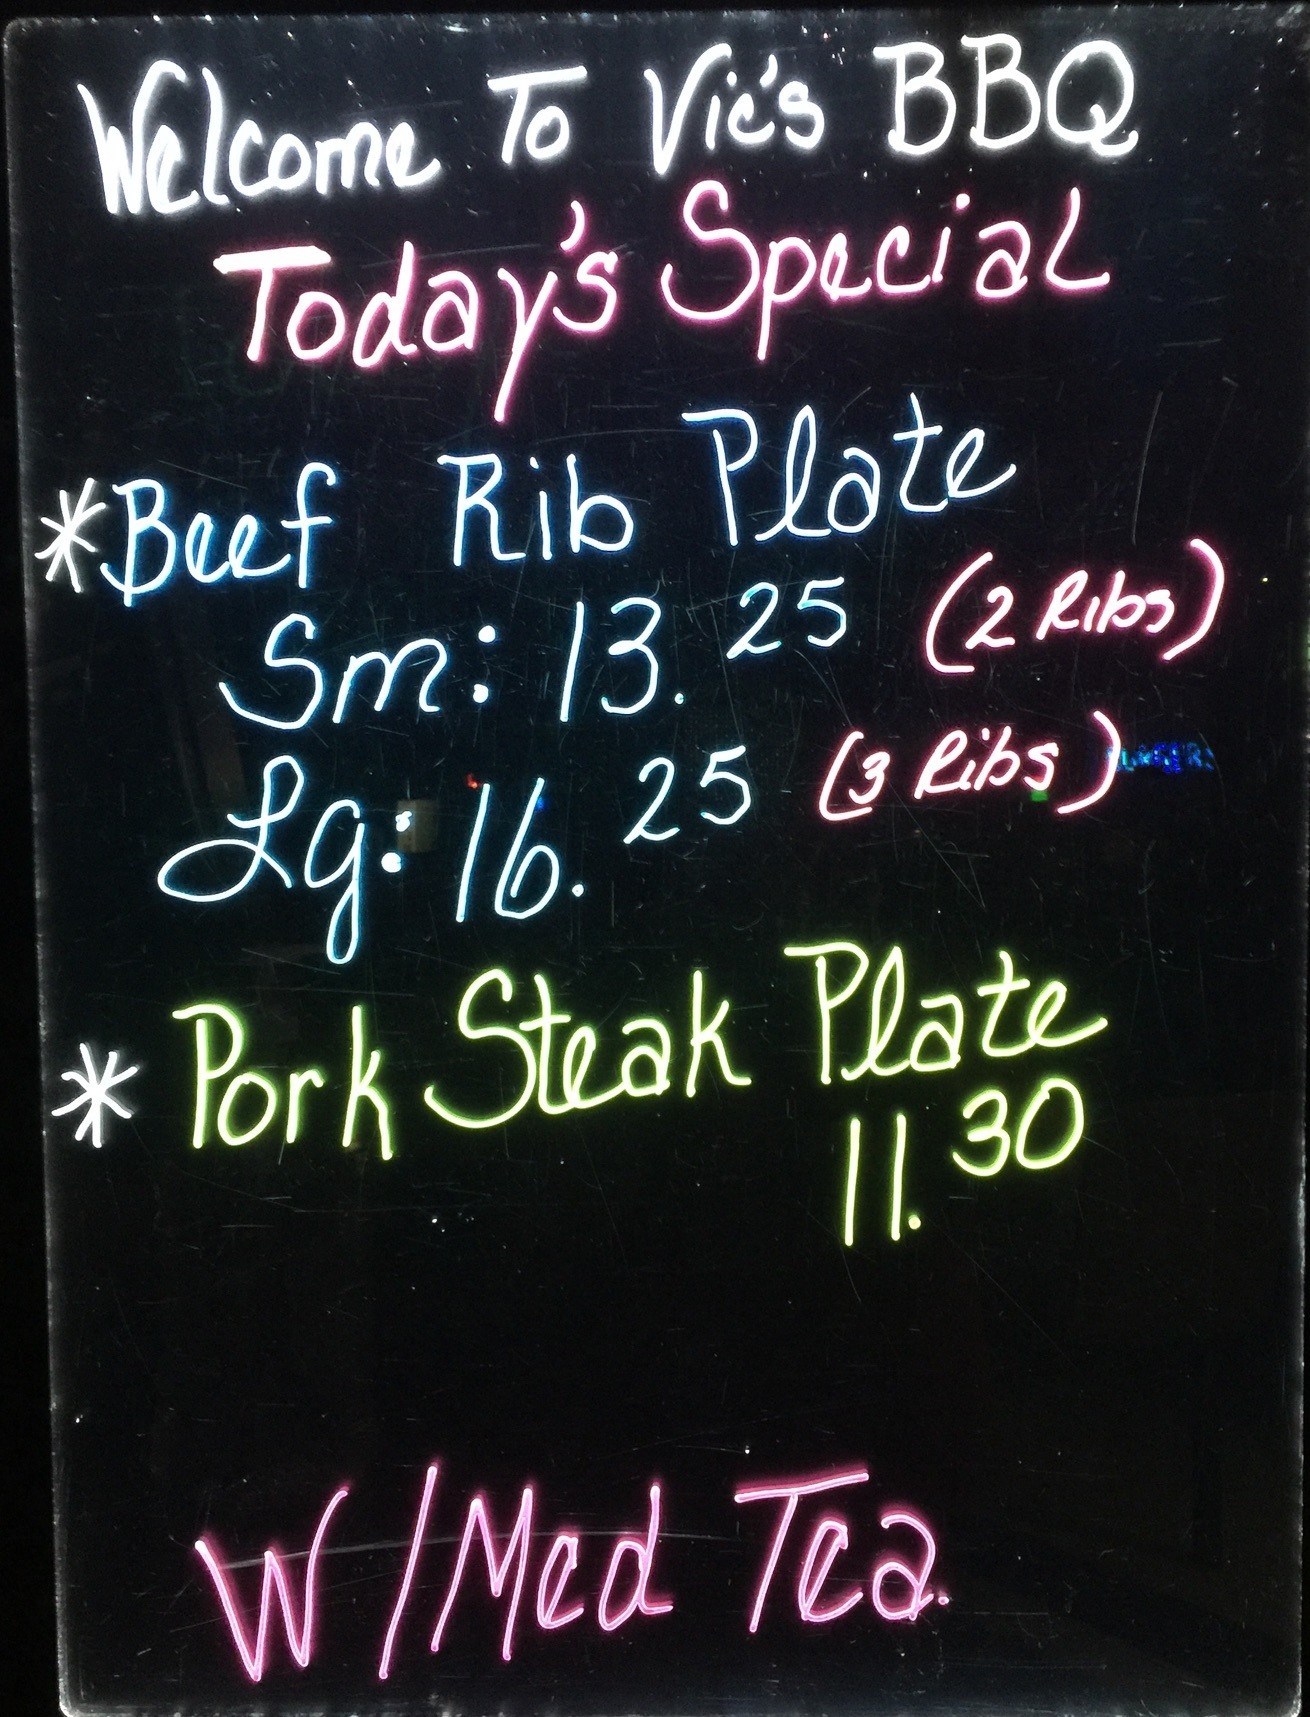 Welcome To Vic's BBQ
Today's Special
*Beef Rib Plate
Sm: 13.25 (2 Ribs)
Lg: 16.25 (3 Ribs)
* Pork Steak Plate
11.30
W/Med Tea.